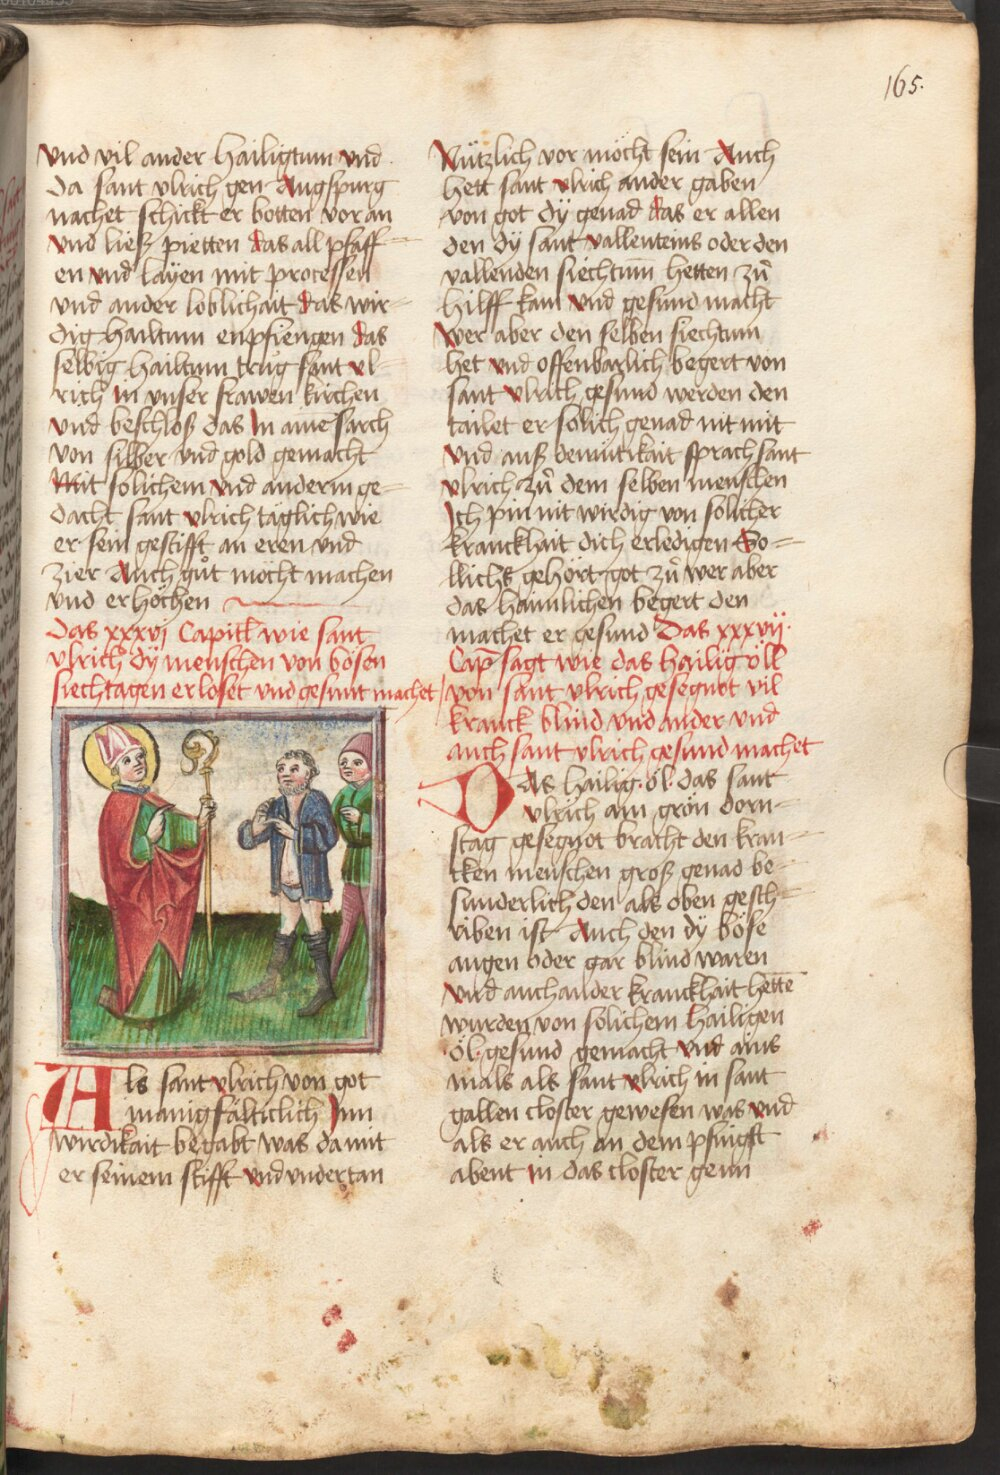 165.
vnd vil ander hailigtum vnd
da sant vlrich gen Augspurg
nachet schickt er botten voran
vnd ließ pietten das all pfaff-
en vnd layen mit processen
vnd ander loblichait das wir-
dig hailtum enpfiengen das
selbig hailtum trug sant vl-
rich in vnser frawen kirchen
vnd beschloß das In aine sarch
von silber vnd gold gemacht
Mit solichem vnd anderm ge-
dacht sant vlrich täglich wie
er sein gestifft an eren vnd
zier Auch gůt möcht machen
vnd erhöchen
Das xxxvj Capitl wie sant
vlrich dy menschen von bösen
siechtagen erloset vnd gesunt machet
Als sant vlrich von got
manigfälticlich Inn
wirdikait begabt was damit
er seinem stifft vnd vndertan
Nützlich vor möcht sein Auch
hett sant vlrich ander gaben
von got dÿ genad das er allen
den dÿ sant vallenteins oder den
vallenden siechtum̄ hetten zů
hilff kam vnd gesund macht
Wer aber den selben siechtum
het vnd offenbarlich begert von
sant vlrich gesund werden den
tailet er solich genad nit mit
vnd auß demütikait sprach sant
vlrich zů dem selben menschen
Ich pin nit wirdig von solicher
kranckhait dich erledigen So-
llichs gehört got zů wer aber
das haimlichen begert den
machet er gesund Das xxxvij.
Cap̄ sagt wie das hailig öll
von sant vlrich gesegnot vil
kranck blind vnd ander vnd
auch sant vlrich gesund machet
Das hailig öl das sant
vlrich am grön dorn-
stag gesegnot bracht den kran-
cken menschen groß genad be-
sunderlich den als oben gesch-
riben ist Auch den dy böse
augen oder gar blind waren
vnd auch ander kranckhait hettē
wurden von solichem hailigen
öl gesund gemacht vnd ains
mals als sant vlrich in sant
gallen closter gewesen was vnd
als er auch an dem pfingst
abent in das closter genn